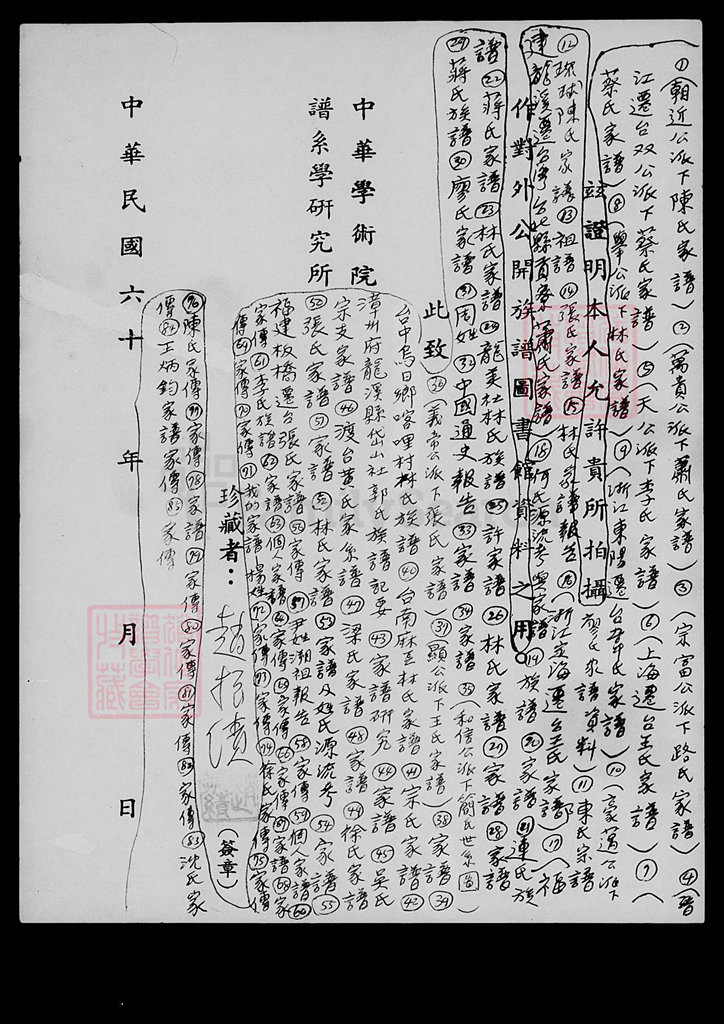 ①(朝近公派下陳氏家譜)②(萬貴公派下蕭氏家譜)③(宗富公派下路氏家譜)④(晉
江遷台双公派下蔡氏家譜)⑤(天公派下李氏家譜)⑥(上海遷台王氏家譜)⑦(
蔡氏家譜)⑧(舉公派下林氏家譜)⑨(浙江東陽遷台 氏家譜)⑩(豪 公派下
茲證明本人允許貴所拍攝
顏氏家譜資料)⑪陳氏宗譜
⑫琅球陳氏家譜⑬祖譜⑭張氏家譜⑮林氏家譜報告⑯(浙江 海遷台王氏家譜)⑰(福
建龍溪遷台灣台北縣貢寮蕭氏家譜)⑱何氏源流考與家譜⑲族譜⑳家譜㉑連氏族
作對外公開族譜圖書館資料之用。
譜㉒蔣氏家譜㉓林氏家譜㉔龍美社林氏族譜㉕許家譜㉖林氏家譜㉗家譜㉘家譜
㉙蔣氏族譜㉚廖氏家譜㉛周姓㉜中國通史報告㉝家譜㉞家譜㉟(和信公派下簡氏世系圖)
此致
㊱(義常公派下張氏家譜)㊲(顯公派下王氏家譜)㊳家譜㊴
台中烏日鄉喀哩村林氏族譜㊵台南麻豆林氏家譜㊶宗氏家譜㊷
漳州府龍溪縣岱山社郭氏族譜記要㊸家譜研究㊹家譜㊺吳氏
中華學術院
宗支家譜㊻渡台黃氏家系譜㊼梁氏家譜㊽家譜㊾徐氏家譜
譜系學研究所
㊿張氏家譜51家譜52林氏家譜53家譜及姓氏源流考54家譜55
福建板橋遷台張氏家譜56家傳57尹姓溯祖報告58家傳59個人家譜60
家傳61李氏族譜62家譜63個人家譜64家傳65家傳66家傳67家譜68家
傳69家傳70家傳71我的家譜-楊姓72家傳73家傳74徐氏家傳75家傳
珍藏者：趙振績 (簽章)
76陳氏家傳77家傳78家譜79家傳80家傳81家傳82家傳83沈氏家
傳84王炳鈞家譜家傳85家傳
中華民國六十 年 月 日